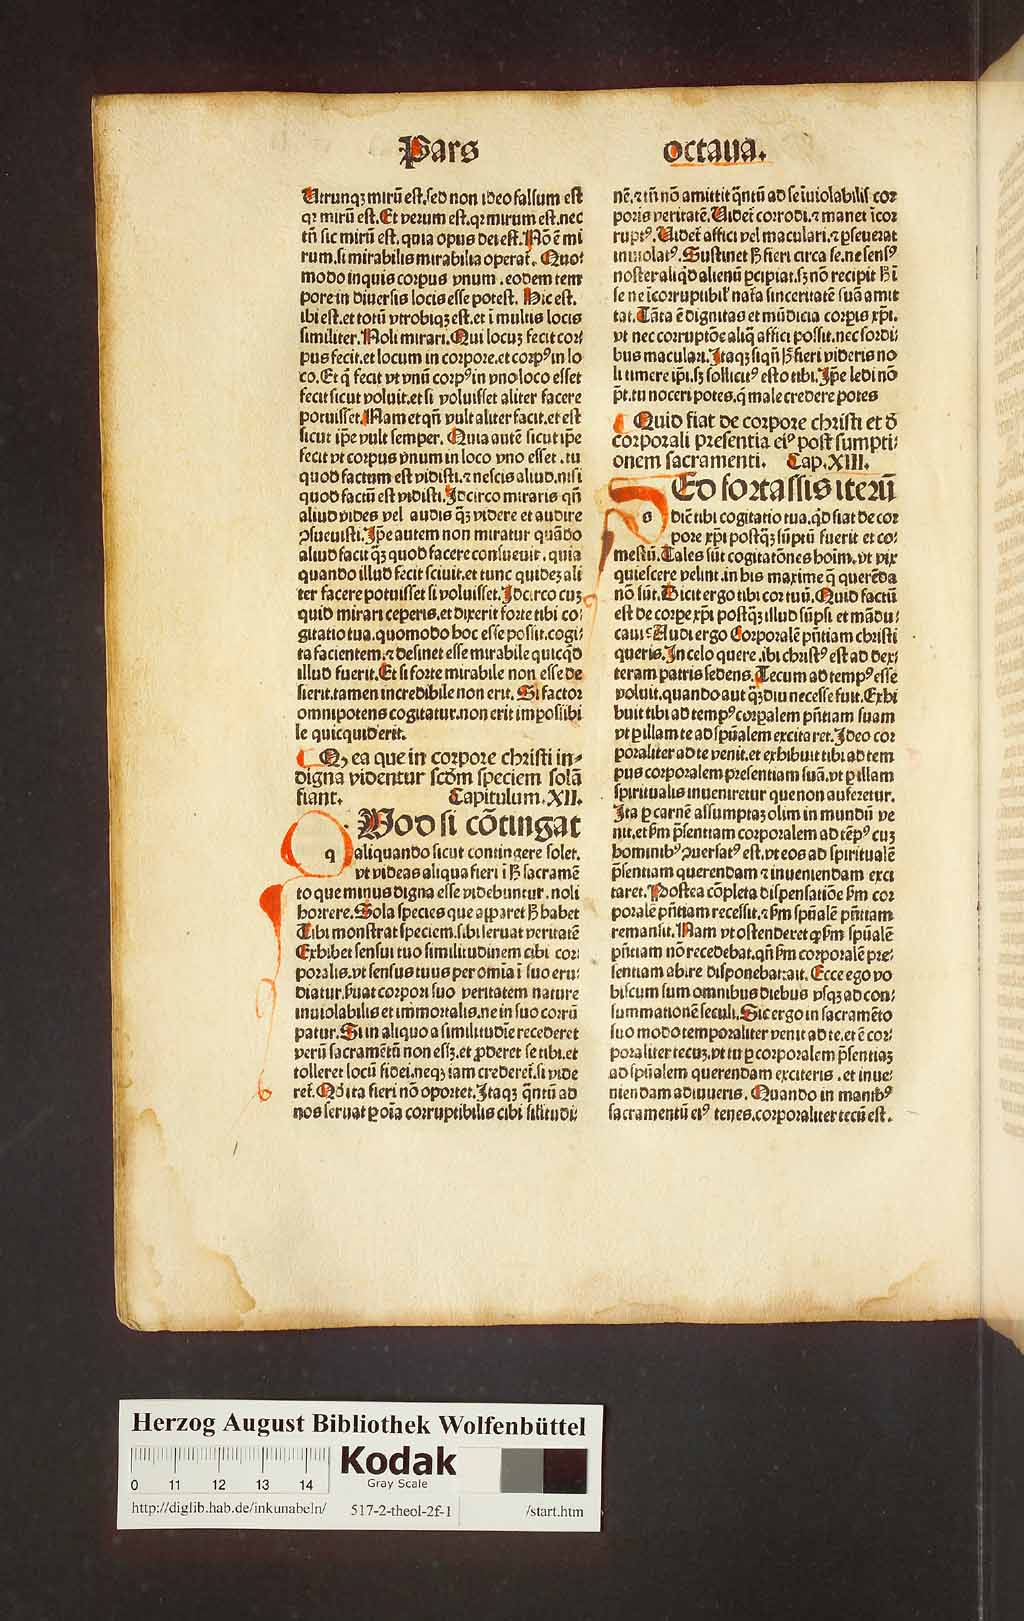 Pars octaua.
Utrunqꝫ mirū est. sed non ideo falsum est
qꝛ mirū est. Et verum est. qꝛ mirum est. nec
tñ sic mirū est. quia opus dei est. Nō ē mi
rum. si mirabilis mirabilia operat̄. Quo⸗
modo inquis corpus vnum. eodem tem
pore in diuersis locis esse potest. Hic est.
ibi est. et totū vtrobiqꝫ est. et ī multis locis
similiter. Noli mirari. Qui locuꝫ fecit cor⸗
pus fecit. et locum in corpore. et corpꝰ in lo
co. Et q̄ fecit vt vnū corpꝰ in vno loco esset
fecit sicut voluit. et si voluisset aliter facere
potuisset. Nam et qñ vult aliter facit. et est
sicut ip̄e vult semper. Quia autē sicut ip̄e
fecit vt corpus vnum in loco vno esset. tu
quod factum est vidisti. ⁊ nescis aliud. nisi
quod factū est vidisti. Idcirco miraris qñ
aliud vides vel audis qꝫ videre et audire
ꝯsueuisti. Ip̄e autem non miratur quādo
aliud facit qꝫ quod facere consueuit. quia
quando illud fecit sciuit. et tunc quideꝫ ali
ter facere potuisset si voluisset. Idcirco cuꝫ
quid mirari ceperis. et dixerit forte tibi co⸗
gitatio tua. quomodo hoc esse possit. cogi⸗
ta facientem. ⁊ desinet esse mirabile quicq̄d
illud fuerit. Et si forte mirabile non esse de
sierit. tamen incredibile non erit. Si factor
omnipotens cogitatur. non erit impossibi
le quicquid erit.
Qꝫ ea que in corpore christi in⸗
digna videntur scd̄m speciem solā
fiant. Capitulum. XII.
Quod si cōtingat
q
aliquando sicut contingere solet.
vt videas aliqua fieri ī h̄ sacramē
to que minus digna esse videbuntur. noli
horrere. Sola species que apparet h̄ habet
Tibi monstrat speciem. sibi seruat veritatē
Exhibet sensui tuo similitudinem cibi cor⸗
poralis. vt sensus tuus per omnia ī suo eru⸗
diatur. s̄uat corpori suo veritatem nature
inuiolabilis et immortalis. ne in suo corrū
patur. Si in aliquo a similitudīe recederet
verū sacramētū non essꝫ. et ꝓderet se tibi. et
tolleret locū fidei. neqꝫ iam crederet̄. si vide
ret. Qd̄ ita fieri nō oportet. Itaqꝫ q̄ntū ad
nos seruat ꝑ oīa corruptibilis cibi silitudi⸗
nē. ⁊ tñ nō amittit q̄ntū ad se īuiolabilis cor
poris veritatē. Videt̄ corrodi. ⁊ manet īcor
ruptꝰ. Videt̄ affici vel maculari. ⁊ ꝑseuerat
inuiolatꝰ. Sustinet h̄ fieri circa se. ne sensꝰ
noster aliq̄d alienū ꝑcipiat. sꝫ nō recipit h̄ ī
se ne īcorruptibil' nat̄a sinceritatē suā amit
tat. Tāta ē dignitas et mūdicia corꝑis xp̄i.
vt nec corruptōe aliq̄ affici possit. nec sordi⸗
bus maculari. Itaqꝫ siqñ h̄ fieri videris no
li timere ip̄i. sꝫ sollicitꝰ esto tibi. Ip̄e ledi nō
pōt. tu noceri potes. q̄ male credere potes
Quid fiat de corpore christi et d̄
corporali presentia eiꝰ post sumpti⸗
onem sacramenti. Cap. XIII.
Sed fortassis iterū
s
dicit tibi cogitatio tua. q̄d fiat de cor
pore xp̄i postqꝫ sūptū fuerit et co⸗
mestū. Tales sūt cogitatōnes hoīm. vt vix
quiescere velint. in his maxime q̄ querēda
nō sūt. Dicit ergo tibi cor tuū. Quid factū
est de corꝑe xp̄i postqꝫ illud sūpsi et mādu⸗
caui? Audi ergo Corporalē p̄ntiam christi
queris. In celo quere. ibi christꝰ est ad dex⸗
teram patris sedens. Tecum ad tempꝰ esse
voluit. quando aut qꝫdiu necesse fuit. Exhi
buit tibi ad tempꝰ corꝑalem p̄ntiam suam
vt ꝑ illam te ad spūalem excitaret. Ideo cor
poraliter ad te venit. et exhibuit tibi ad tem
pus corporalem presentiam suā. vt ꝑ illam
spiritualis inueniretur que non auferetur.
Ita ꝑ carnē assumptaꝫ olim in mundū ve
nit. et ẜm p̄sentiam corporalem ad tēpꝰ cuꝫ
hominibꝰ ꝯuersatꝰ est. vt eos ad spiritualē
p̄sentiam querendam ⁊ inueniendam exci
taret. Postea cōpleta dispensatiōe ẜm cor
poralē p̄ntiam recessit. ⁊ ẜm spūalē p̄ntiam
remansit. Nam vt ostenderet qꝙ ẜm spūalē
p̄ntiam nō recedebat. qñ ẜm corporalē pre⸗
sentiam abire disponebat. ait. Ecce ego vo
biscum sum omnibus diebus vsqꝫ ad con⸗
summationē seculi. Sic ergo in sacramēto
suo modo temporaliter venit ad te. et ē cor⸗
poraliter tecuꝫ. vt tu ꝑ corporalem p̄sentiaꝫ
ad spūalem querendam exciteris. et inue⸗
niendam adiuueris. Quando in manibꝰ
sacramentū eiꝰ tenes. corporaliter tecū est.
Herzog August Bibliothek Wolfenbüttel
0 11 12 13 14
Kodak
Gray Scale
http://diglib.hab.de/inkunabeln/ 517-2-theol-2f-1 /start.htm